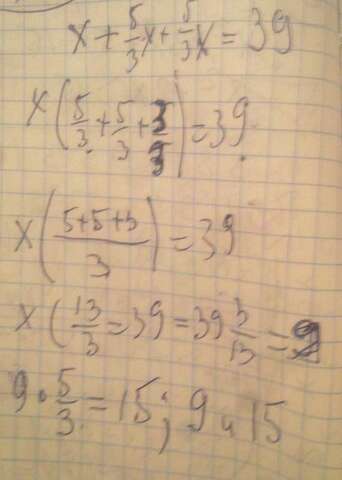 x + 5/3 x + 5/3 x = 39
x (5/3 + 5/3 + 3/3) = 39
x (5+5+3 / 3) = 39
x ( 13/3 = 39 = 39 3/13 = 9
9 · 5/3 = 15 ; 9 и 15